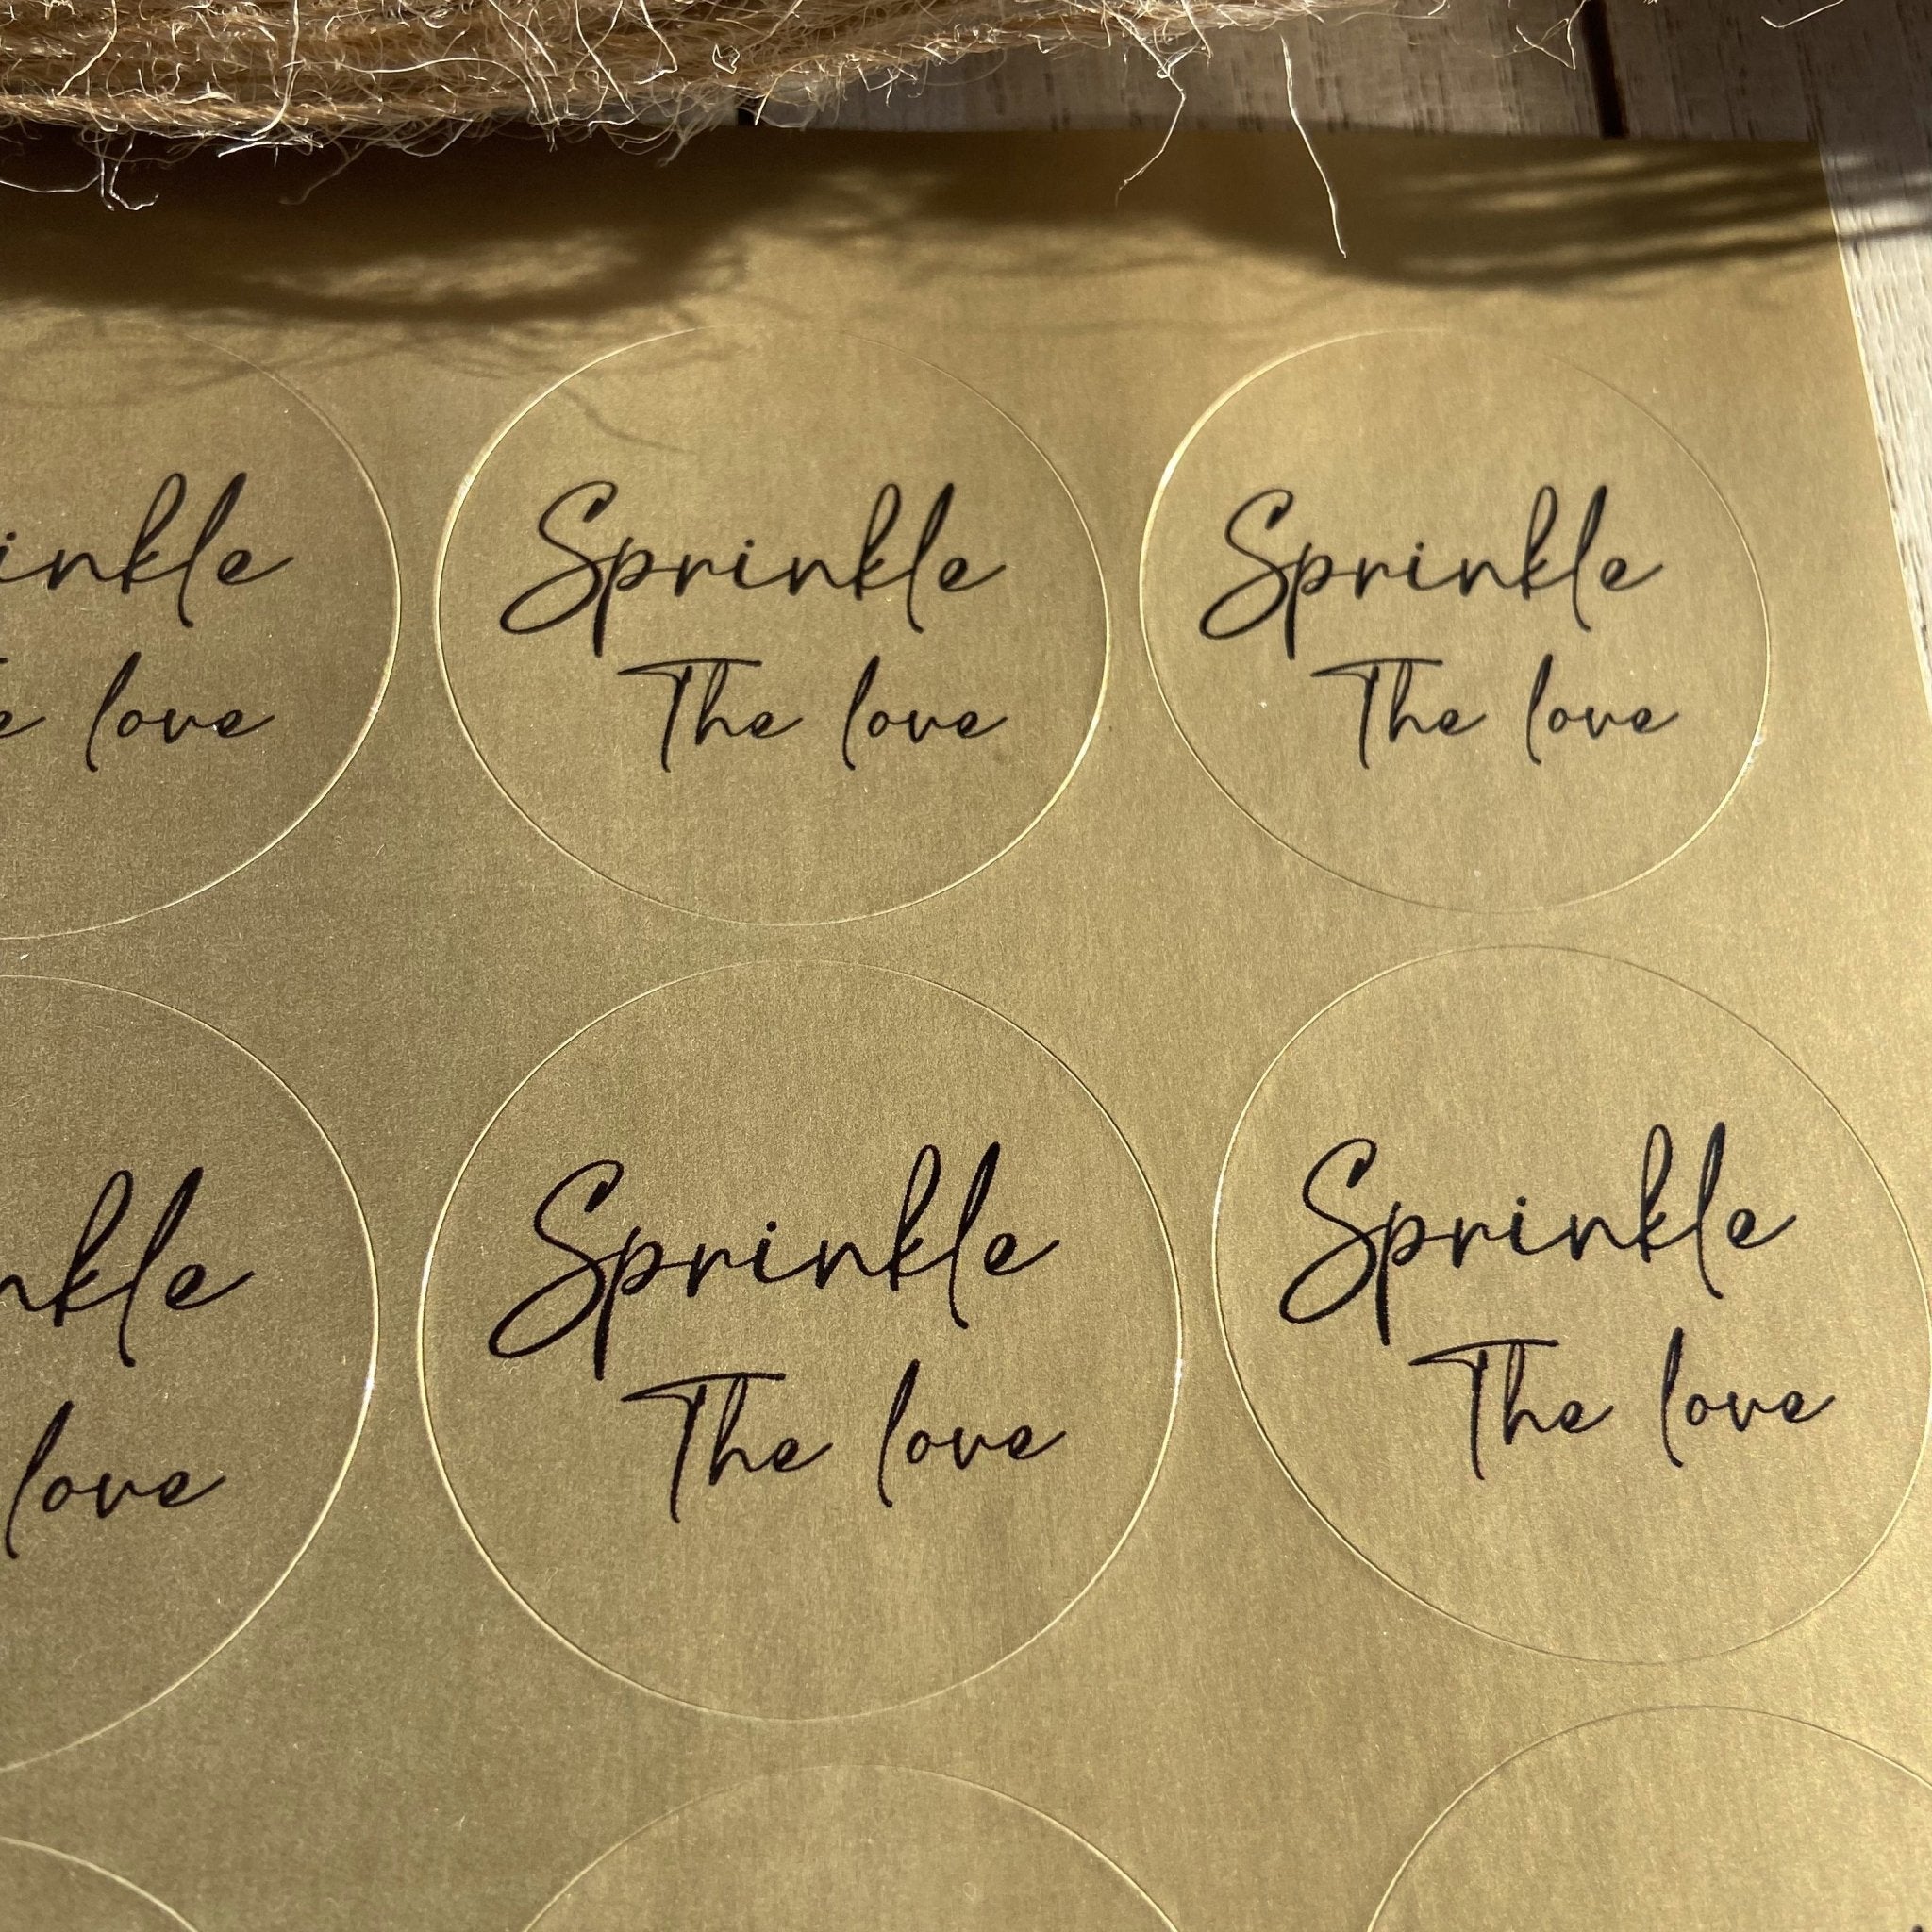 inkle
e love
Sprinkle
The love
Sprinkle
The love
nkle
love
Sprinkle
The love
Sprinkle
The love